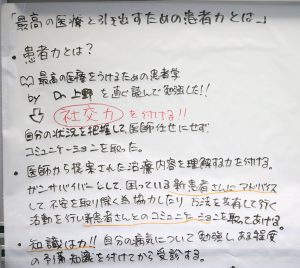 「最高の医療を引き出すための患者力とは。」
・患者力とは?
最高の医療をうけるための患者学
by Dr 上野 を直ぐ読んで勉強した!!
社交力 を付ける!!
自分の状況を把握して医師任せにせず
コミュニケーションを取った。
・医師から提案された治療内容を理解する力を付ける。
ガンサバイバーとして、困っている新患者さんにアドバイス
して不安を取り除く為協力したり 方法を共有して行く
活動を行い新患者さんとのコミュニケーションを取ってあげる。
・知識は力!! 自分の病気について勉強しある程度
の予備知識を付けてから受診する。